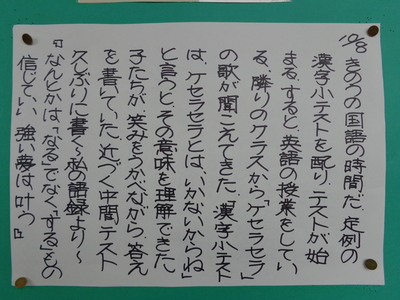 10/8
きのうの国語の時間だ。定例の
漢字小テストを配り、テストが始
まる。すると、英語の授業をしてい
る、隣りのクラスから、「ケセラセラ」
の歌が聞こえてきた。「漢字小テスト
は、ケセラセラとは、いかないからね」
と言うと、その意味を理解できた
子たちが、笑みをうかべながら、答え
を書いていた。近づく中間テスト
久しぶりに書く〜私の語録より〜
『なんとかは、「なる」でなく、「する」もの
信じていい 強い夢は、叶う。』